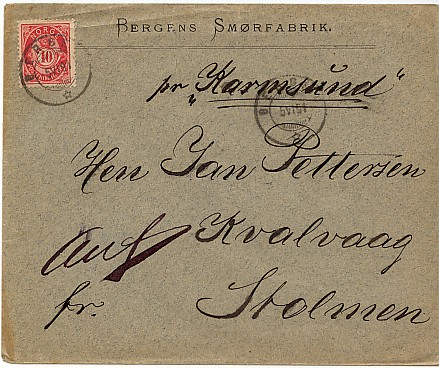 NORGE
10
BERGENS SMØRFABRIK.
pr „Karmsund"
BERGEN
Herr Jan Pettersen
Kvalvaag
fr. Stolmen